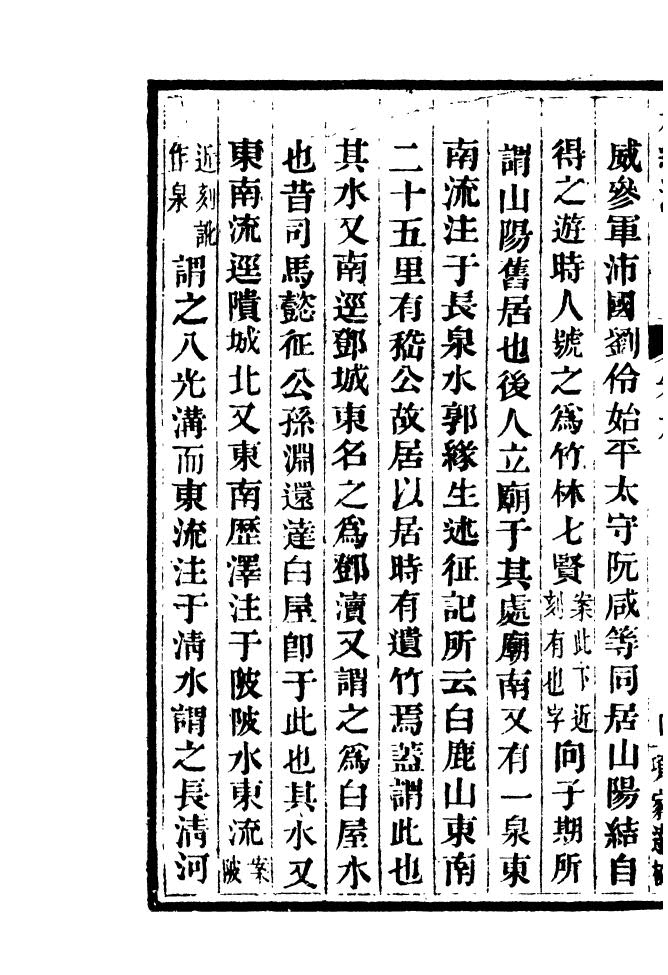 威參軍沛國劉伶始平太守阮咸等同居山陽結自
得之遊時人號之爲竹林七賢案此下近刻有也字向子期所
謂山陽舊居也後人立廟于其處廟南又有一泉東
南流注于長泉水郭緣生述征記所云白鹿山東南
二十五里有嵇公故居以居時有遺竹焉蓋謂此也
其水又南逕鄧城東名之爲鄧瀆又謂之爲白屋水
也昔司馬懿征公孫淵還達白屋卽于此也其水又
東南流逕隤城北又東南歷澤注于陂陂水東流案陂
近刻訛作泉謂之八光溝而東流注于淸水謂之長淸河